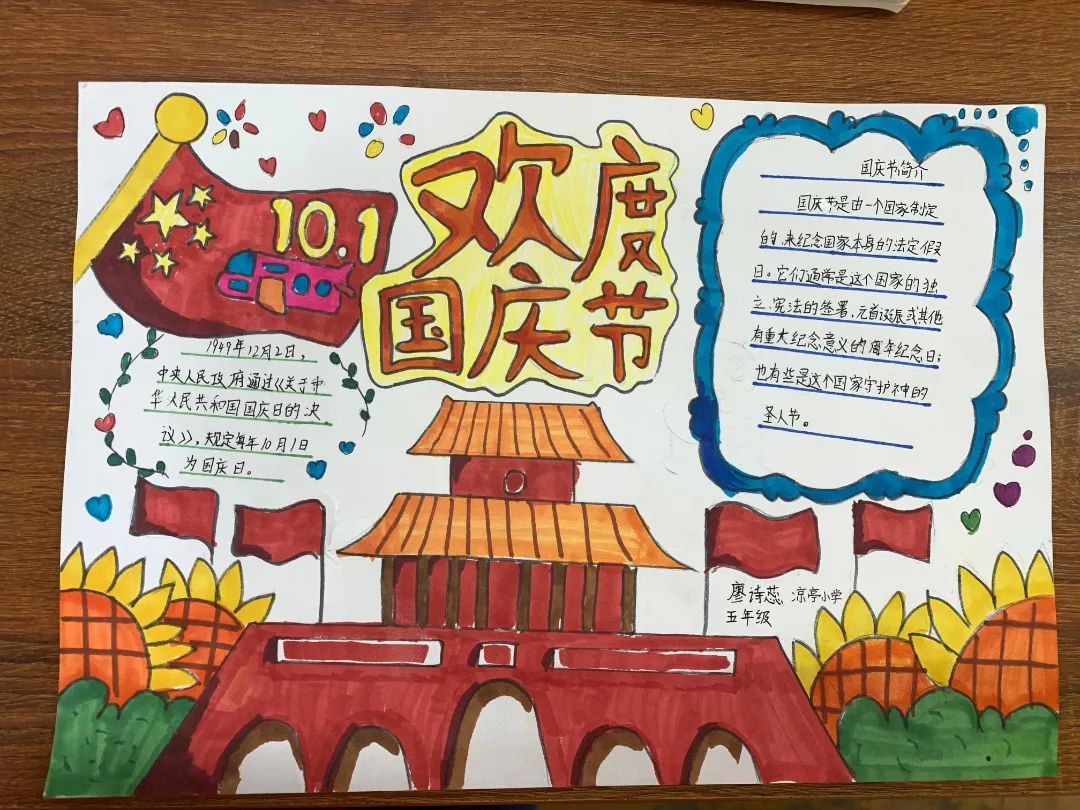 10.1
欢度
国庆节
1949年12月2日，
中央人民政府通过《关于中
华人民共和国国庆日的决
议》，规定每年10月1日
为国庆日。
国庆节简介
国庆节是由一个国家制定
的，来纪念国家本身的法定假
日。它们通常是这个国家的独
立、宪法的签署、元首诞辰或其他
有重大纪念意义的周年纪念日；
也有些是这个国家守护神的
圣人节。
廖诗蕊 凉亭小学
五年级